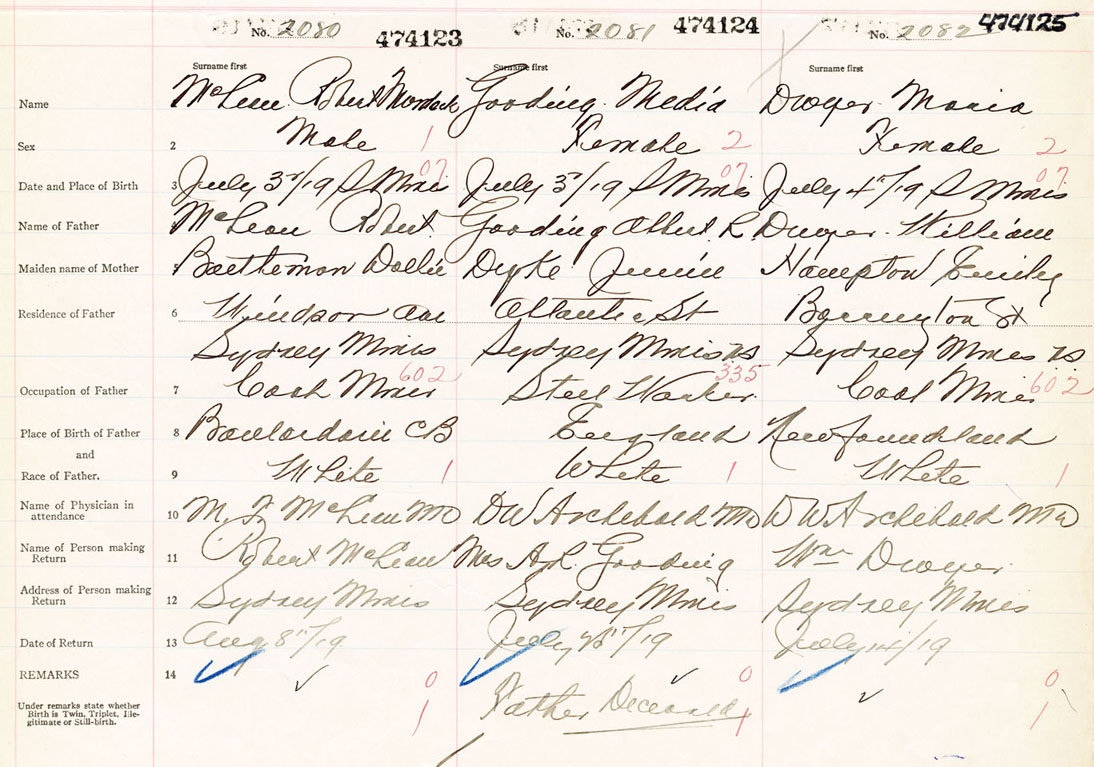 No. 2080 474123 No. 2081 474124 No. 2082 474125
Surname first Surname first Surname first
Name McLean Robert Murdock Gooding Media Dwyer Maria
Sex 2 Male 1 Female 2 Female 2
07 07 07
Date and Place of Birth 3 July 3rd/19 S Mines July 3rd/19 S Mines July 4th/19 S Mines
Name of Father McLean Robert Gooding Albert L Dwyer William
Maiden name of Mother Dollie Dyke Jennie Hampton Emily
Residence of Father 6 Windsor Ave Atlantic St Barrington St
Sydney Mines Sydney Mines NS Sydney Mines NS
602 335 602
Occupation of Father 7 Coal Miner Steel Worker Coal Miner
Place of Birth of Father 8 Boularderie CB England Newfoundland
and
Race of Father. 9 White 1 White 1 White 1
Name of Physician in
attendance 10 M. F. McLean MD DW Archibald MD DW Archibald MD
Name of Person making
Return 11 Robert McLean Mrs A.L. Gooding Wm Dwyer
Address of Person making
Return 12 Sydney Mines Sydney Mines Sydney Mines
Date of Return 13 Aug 8th/19 July /19 July 14/19
REMARKS 14 0 0 0
Under remarks state whether
Birth is Twin, Triplet, Ille-
gitimate or Still-birth. 1 Father Deceased 1 1